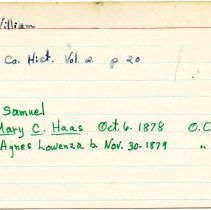 William
Co. Hist. Vol. 2. p 20
Samuel
Mary C. Haas Oct. 6. 1878 O.C
Agnes Lowenza b. Nov. 30 - 1879 "